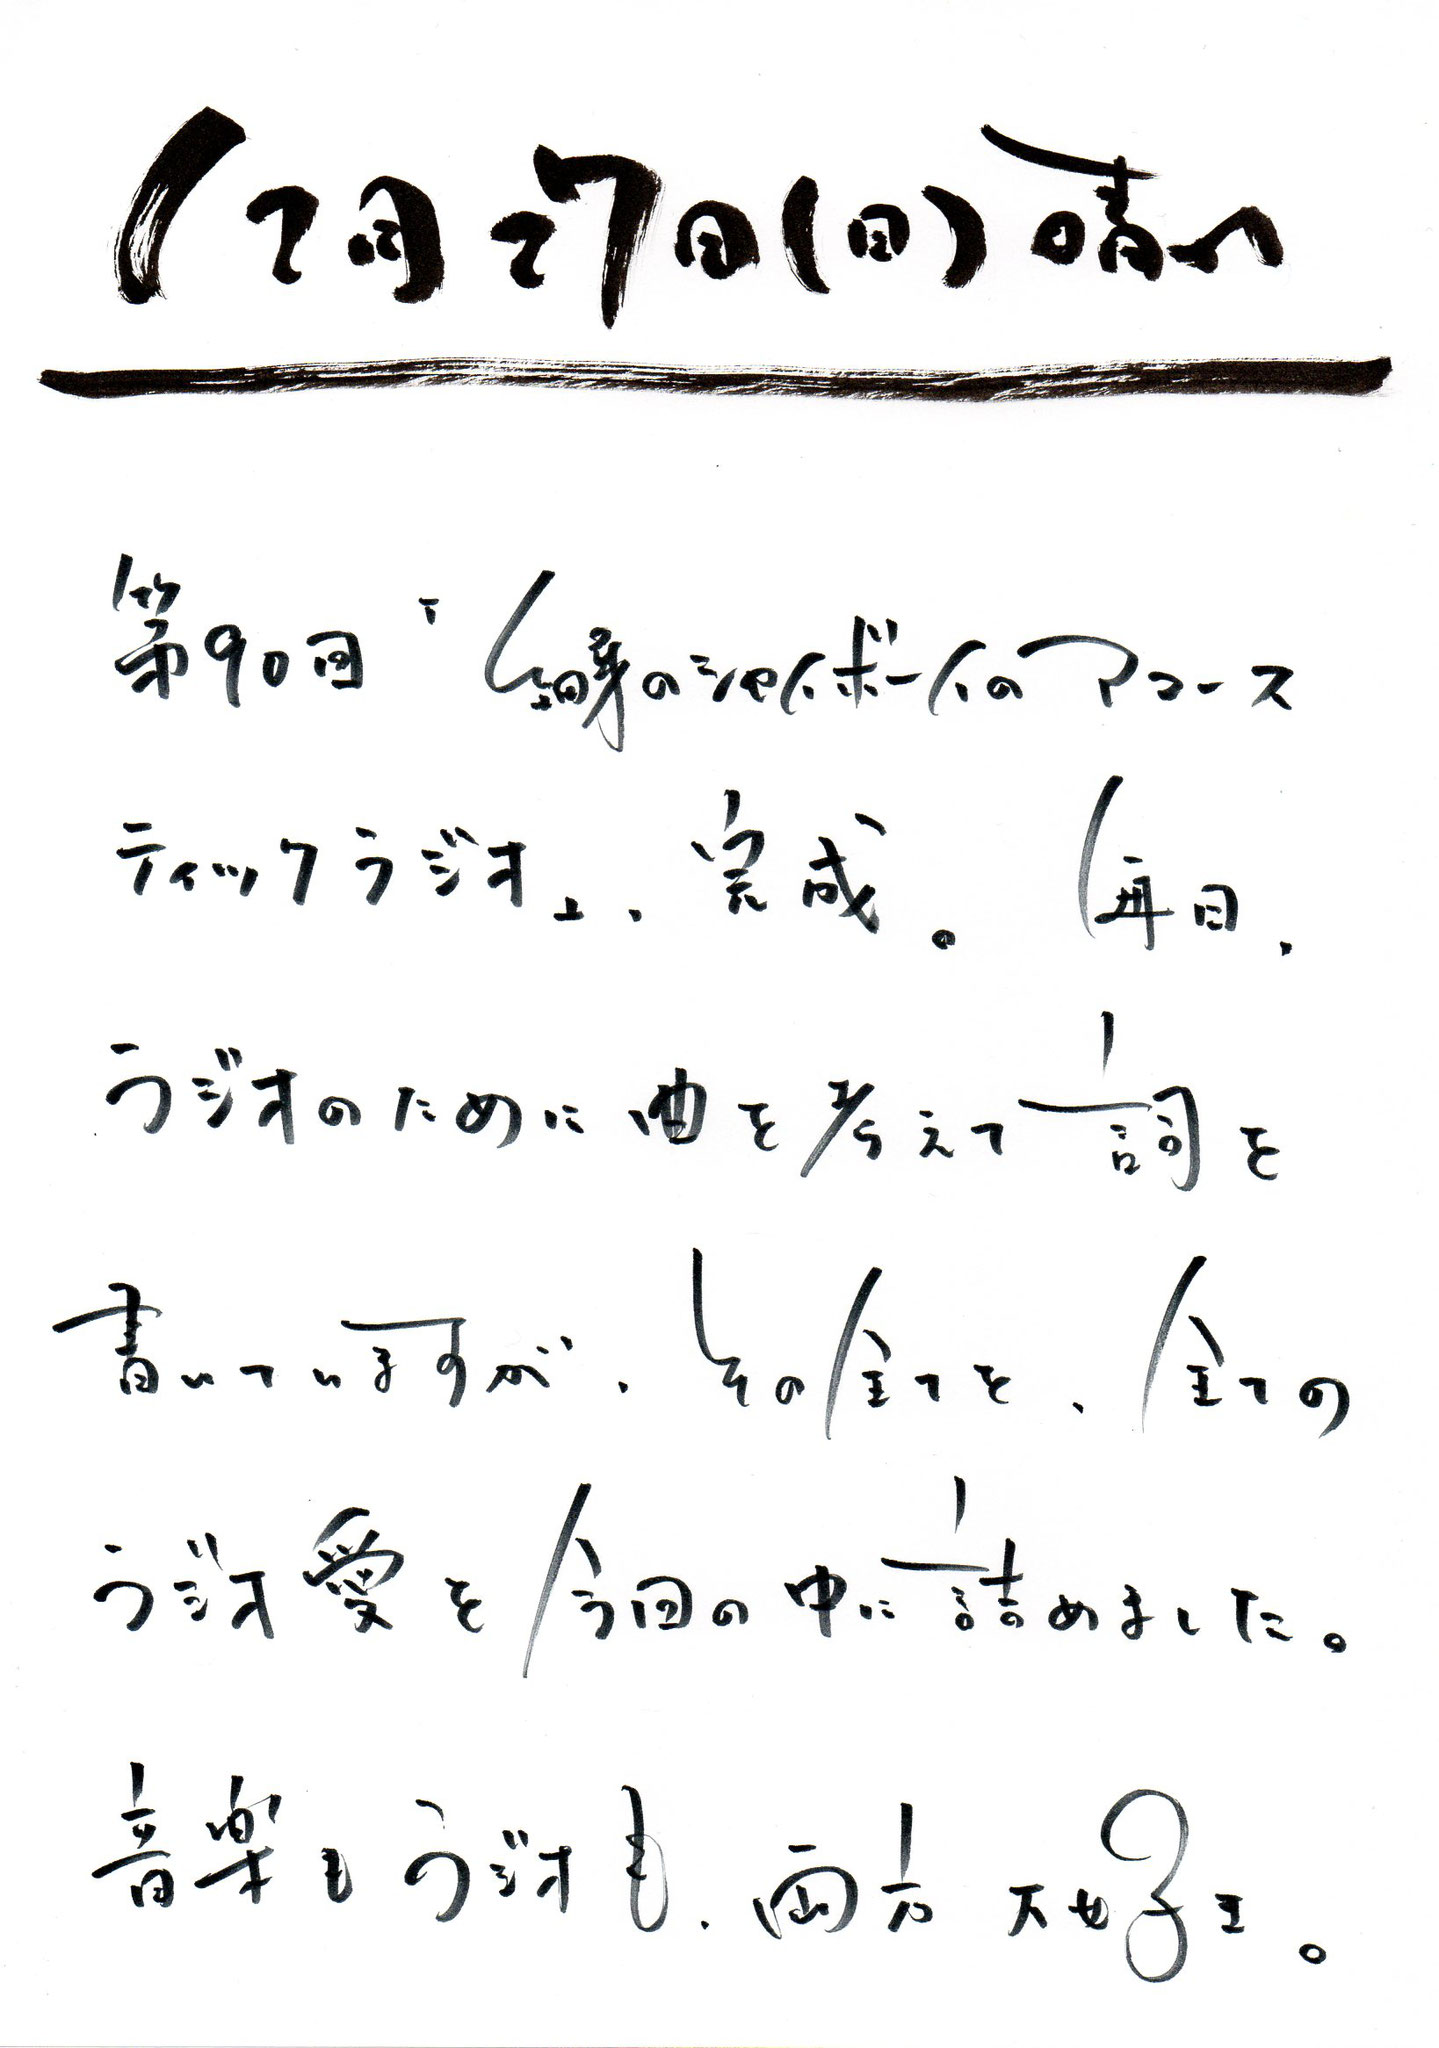 12月27日(日)晴れ
第90回「細身のシャイボーイのアコース
ティックラジオ」、完成。毎日、
ラジオのために曲を考えて詞を
書いていますが、その全てを、全ての
ラジオ愛を今回の中に詰めました。
音楽もラジオも、両方大好き。